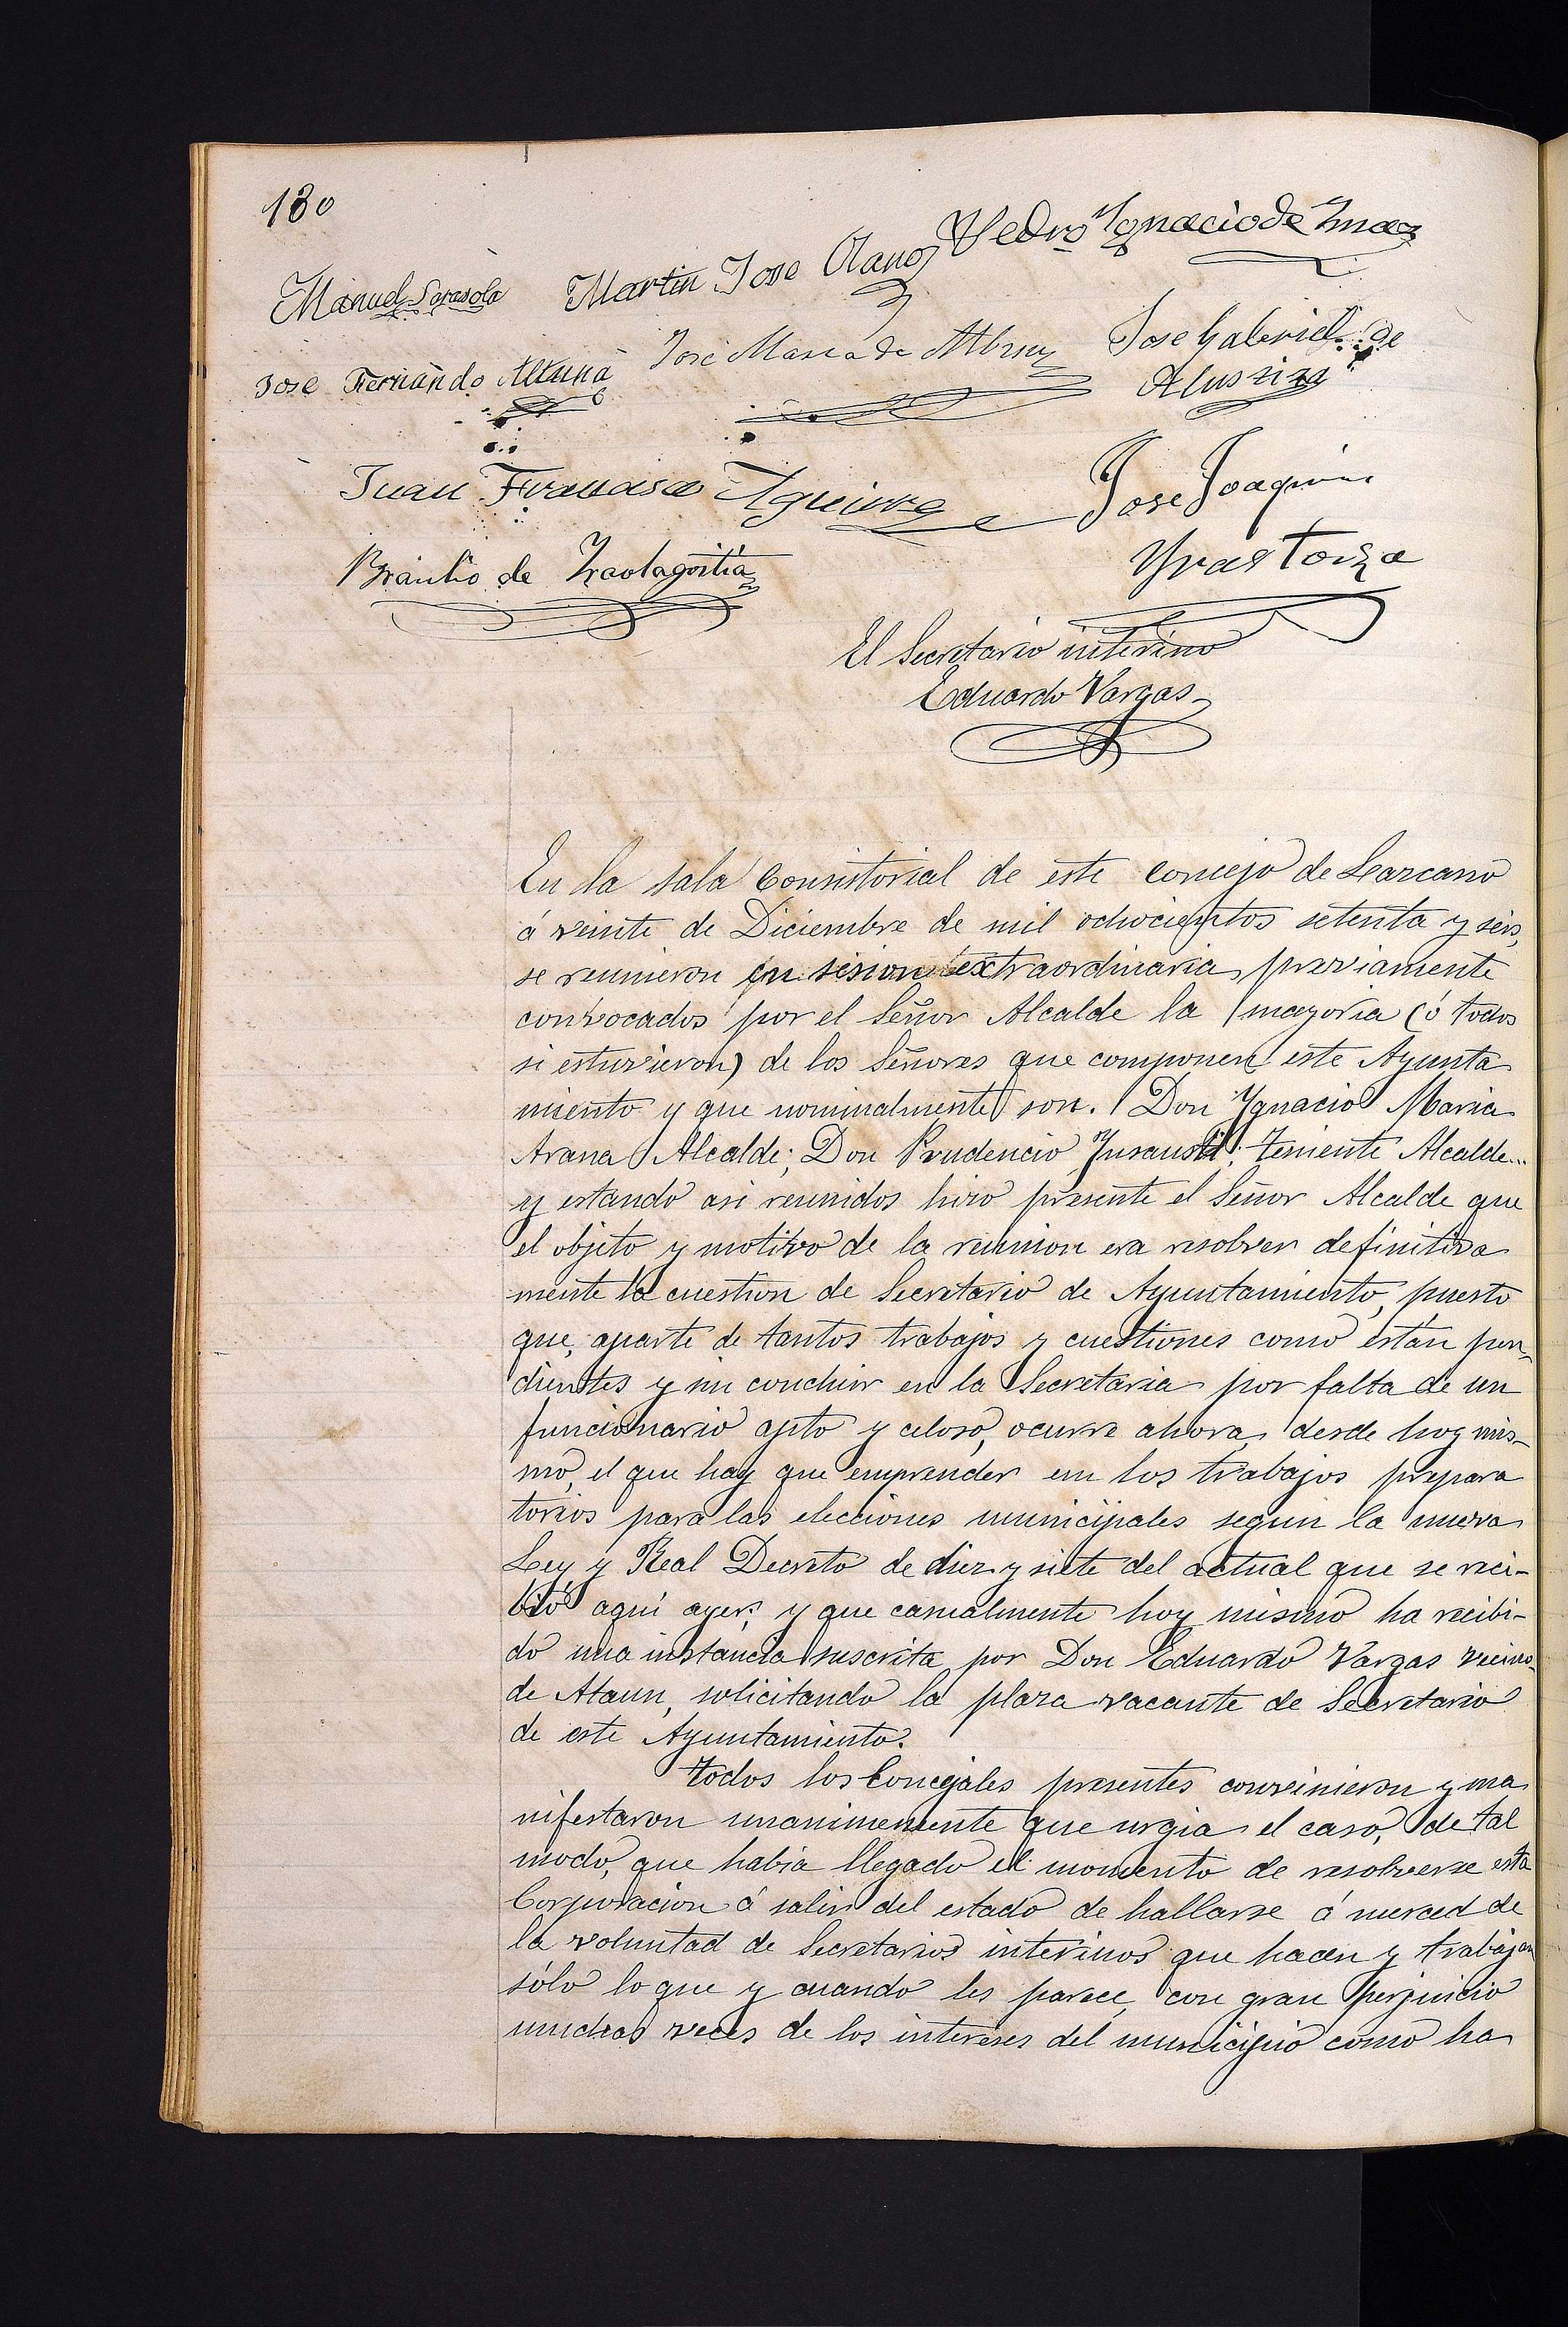 180
Pedro Ygnacio de Ymaz
Manuel Sarasola Martin Jose Olano
Jose Fernando Altuna Jose Maria de Jose Gabriel de
Juan Francisco Aguirre Jose Joaquin
Braulio de Iraolagoitia
El Secretario interino
Eduardo Vargas
En la sala Consistorial de este Concejo de Lazcano
á veinte de Diciembre de mil ochocientos setenta y seis,
se reunieron en sesion extraordinaria, previamente
convocados por el Señor Alcalde la mayoria (ó todos
si estuvieron) de los Señores que componen este Ayunta
miento y que nominalmente son. Don Ygnacio Maria
Arana Alcalde; Don Prudencio Insausti; teniente Alcalde...
y estando asi reunidos hizo presente el Señor Alcalde que
el objeto y motivo de la reunion era resolver definitiva
mente la cuestion de Secretario de Ayuntamiento, puesto
que, aparte de tantos trabajos y cuestiones como están pen-
dientes y sin concluir en la Secretaria por falta de un
funcionario apto y celoso, ocurre ahora, desde hoy mis-
mo, el que hay que emprender en los trabajos prepara
torios para las elecciones municipales segun la nueva
Ley y Real Decreto de diez y siete del actual que se reci-
bió aqui ayer; y que casualmente hoy mismo ha recibi-
do una instancia suscrita por Don Eduardo Vargas vecino
de Ataun, solicitando la plaza vacante de Secretario
de este Ayuntamiento.
Todos los Concejales presentes convinieron y ma
nifestaron unanimemente que urgia el caso, de tal
modo, que habia llegado el momento de resolverse esta
Corporacion á salir del estado de hallarse á merced de
la voluntad de Secretarios interinos que hacen y trabajan
sólo lo que y cuando les parece, con gran perjuicio
muchas veces de los intereses del municipio como ha